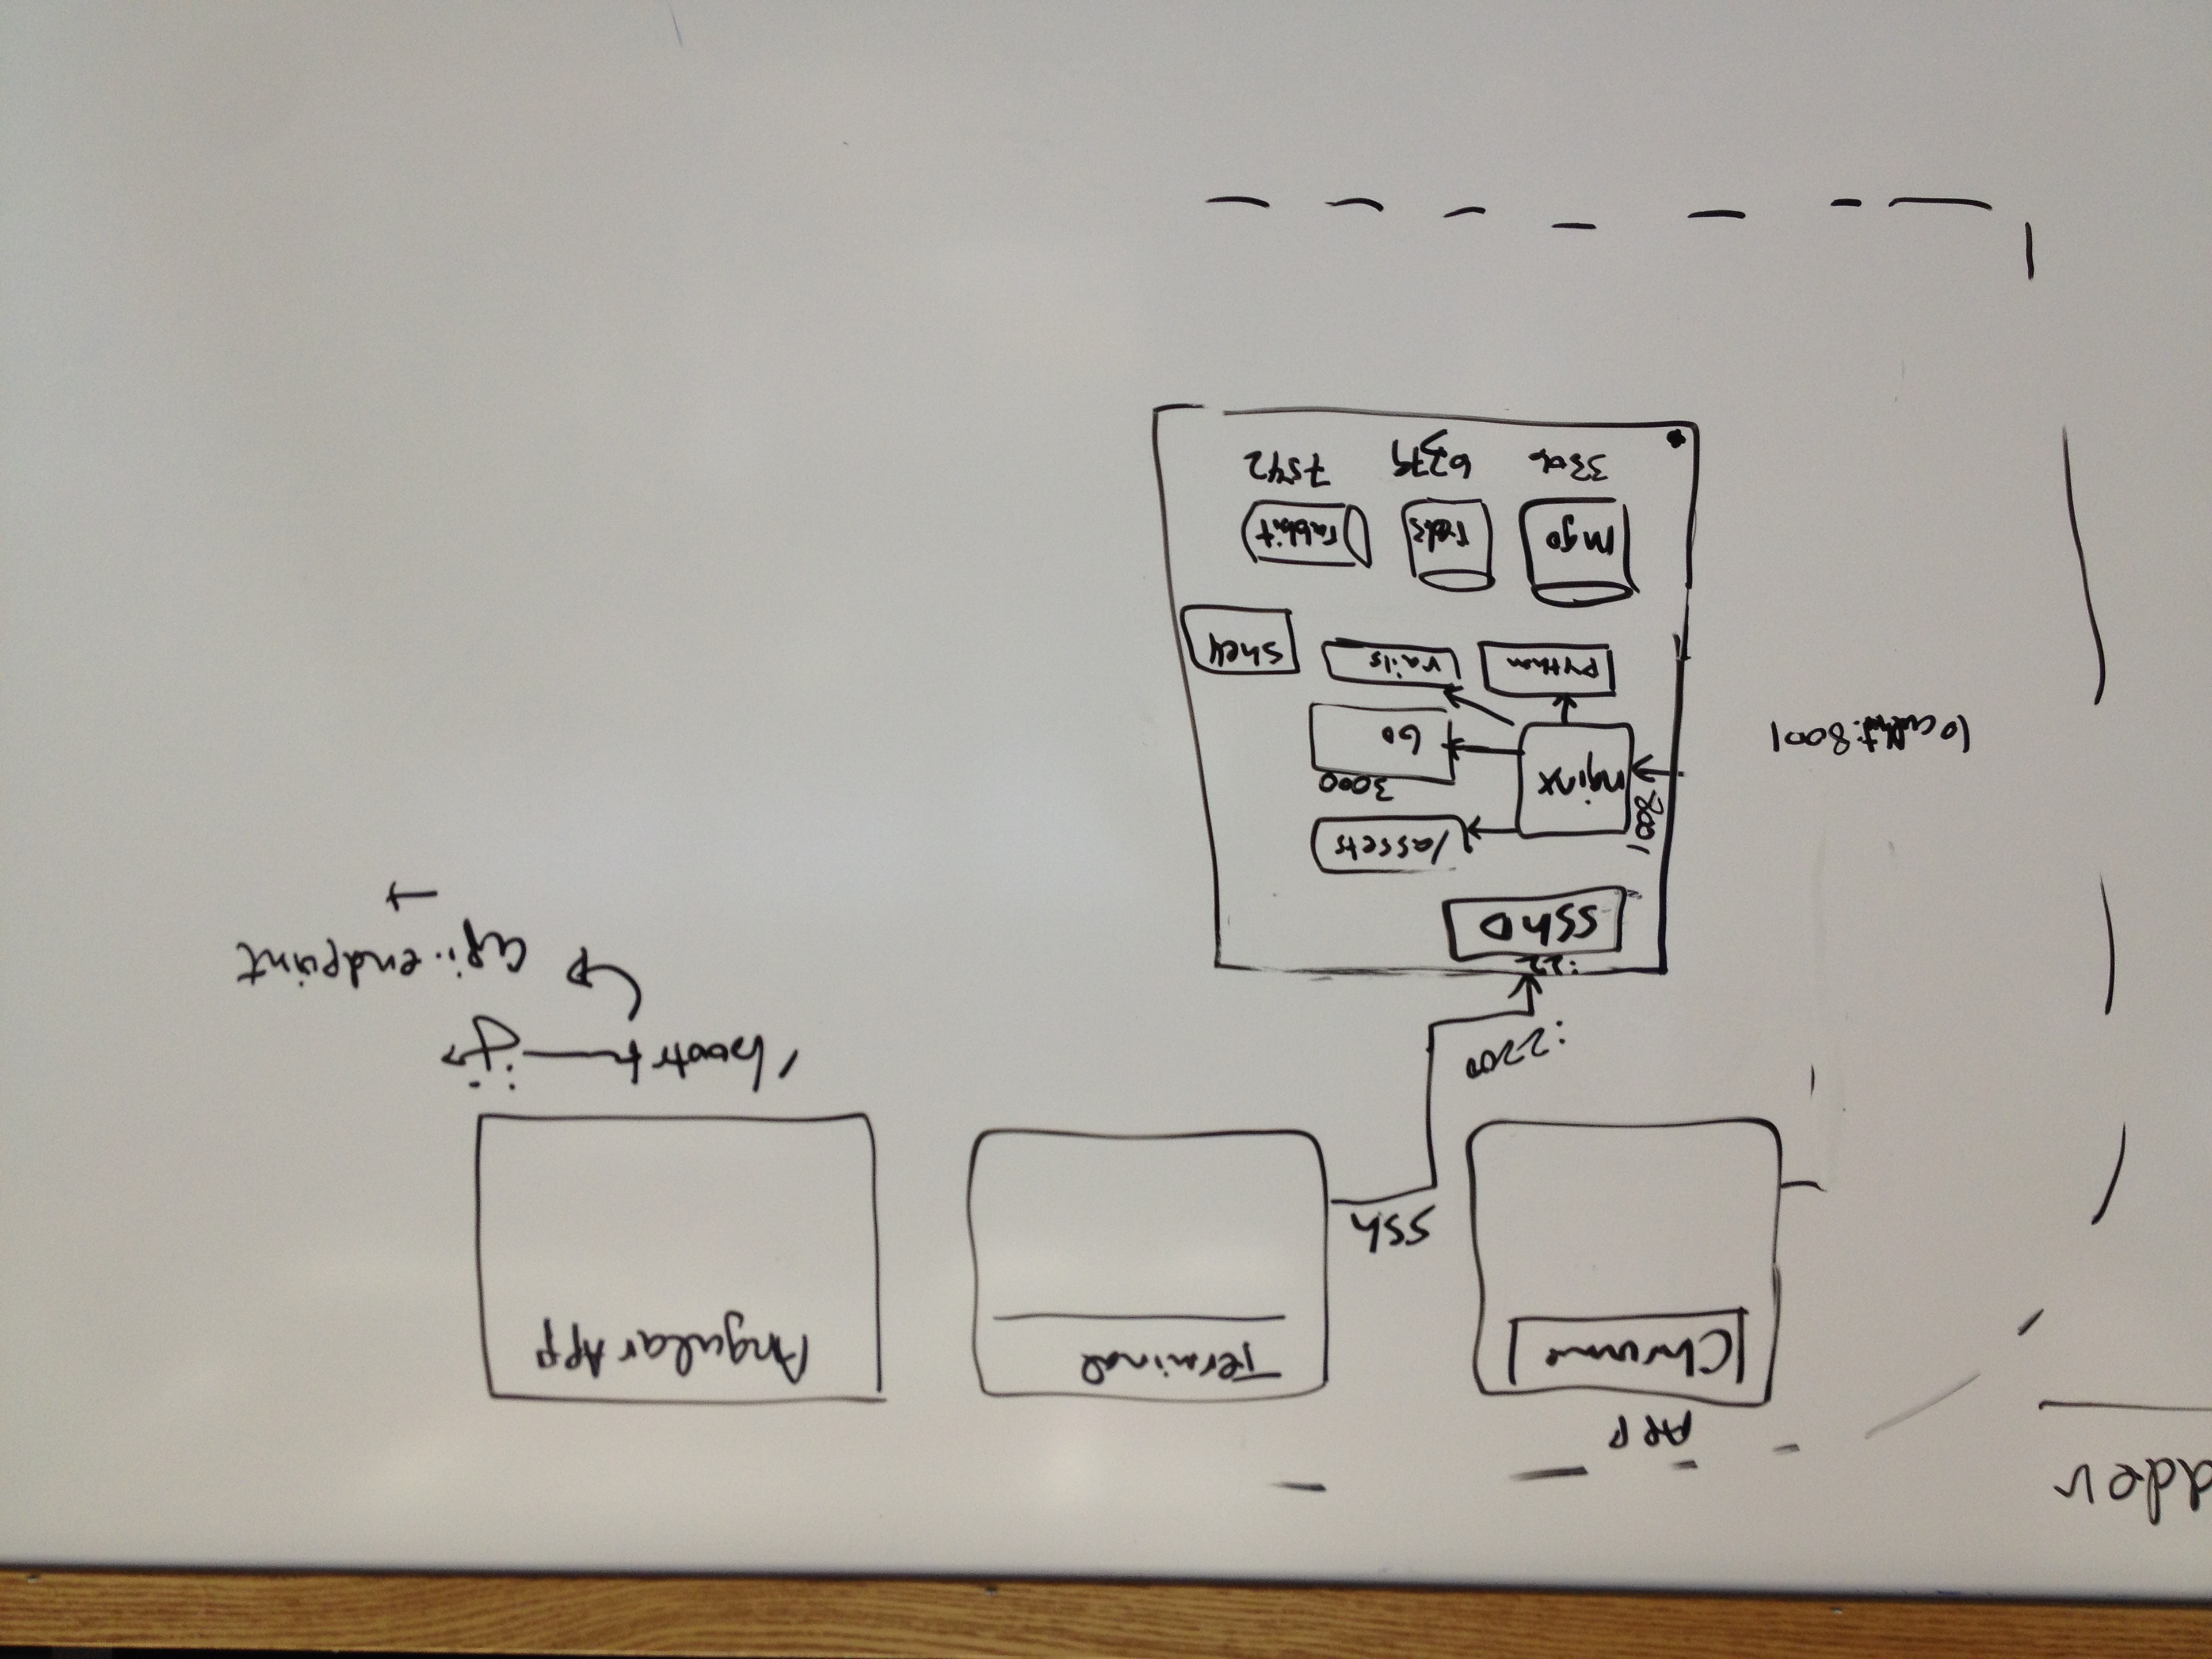 dder
APP
Chrome
Terminal
Angular App
ssh
:2200
:22
sshD
api.endpoint
/assets
8001
nginx
3000
Go
localhost:8001
python
rails
shell
mgo
redis
rabbit
3306
6379
7542